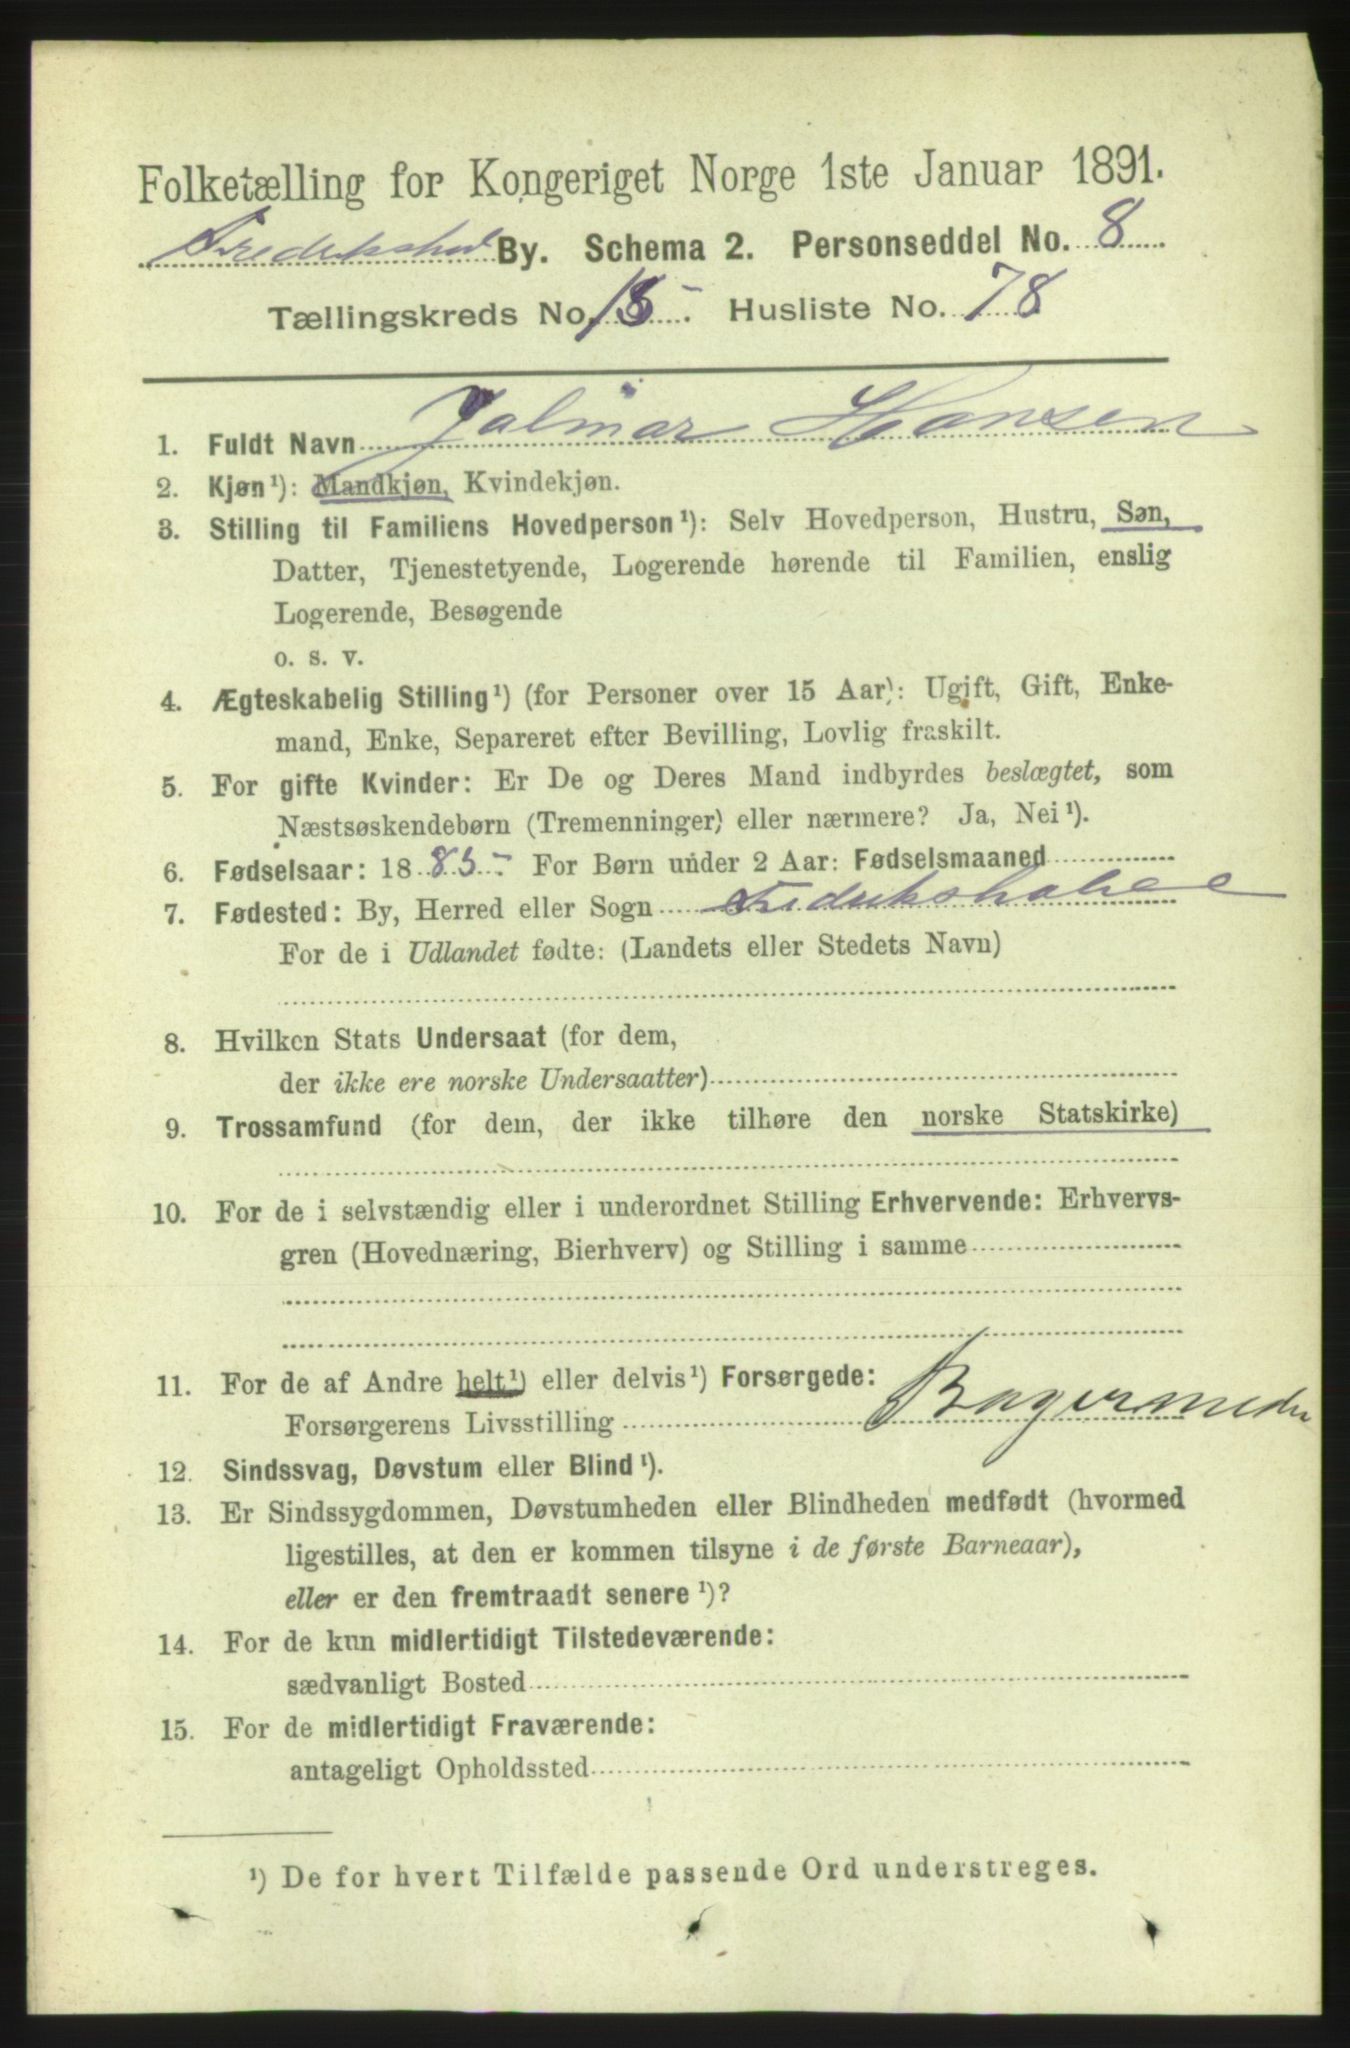 Folketælling for Kongeriget Norge 1ste Januar 1891.
Fredrikshal By. Schema 2. Personseddel No. 8
Tællingskreds No. 15. Husliste No. 78
1. Fuldt Navn Jalmar Hansen
2. Kjøn¹): Mandkjøn, Kvindekjøn.
3. Stilling til Familiens Hovedperson¹): Selv Hovedperson, Hustru, Søn,
Datter, Tjenestetyende, Logerende hørende til Familien, enslig
Logerende, Besøgende
o. s. v.
4. Ægteskabelig Stilling¹) (for Personer over 15 Aar): Ugift, Gift, Enke-
mand, Enke, Separeret efter Bevilling, Lovlig fraskilt.
5. For gifte Kvinder: Er De og Deres Mand indbyrdes beslægtet, som
Næstsøskendebørn (Tremenninger) eller nærmere? Ja, Nei¹).
6. Fødselsaar: 1885 For Børn under 2 Aar: Fødselsmaaned
7. Fødested: By, Herred eller Sogn
For de i Udlandet fødte: (Landets eller Stedets Navn)
8. Hvilken Stats Undersaat (for dem,
der ikke ere norske Undersaatter)
9. Trossamfund (for dem, der ikke tilhøre den norske Statskirke)
10. For de i selvstændig eller i underordnet Stilling Erhvervende: Erhvervs-
gren (Hovednæring, Bierhverv) og Stilling i samme
11. For de af Andre helt¹) eller delvis¹) Forsørgede:
Forsørgerens Livsstilling
12. Sindssvag, Døvstum eller Blind¹).
13. Er Sindssygdommen, Døvstumheden eller Blindheden medfødt (hvormed
ligestilles, at den er kommen tilsyne i de første Barneaar),
eller er den fremtraadt senere¹)?
14. For de kun midlertidigt Tilstedeværende:
sædvanligt Bosted
15. For de midlertidigt Fraværende:
antageligt Opholdssted
¹) De for hvert Tilfælde passende Ord understreges.